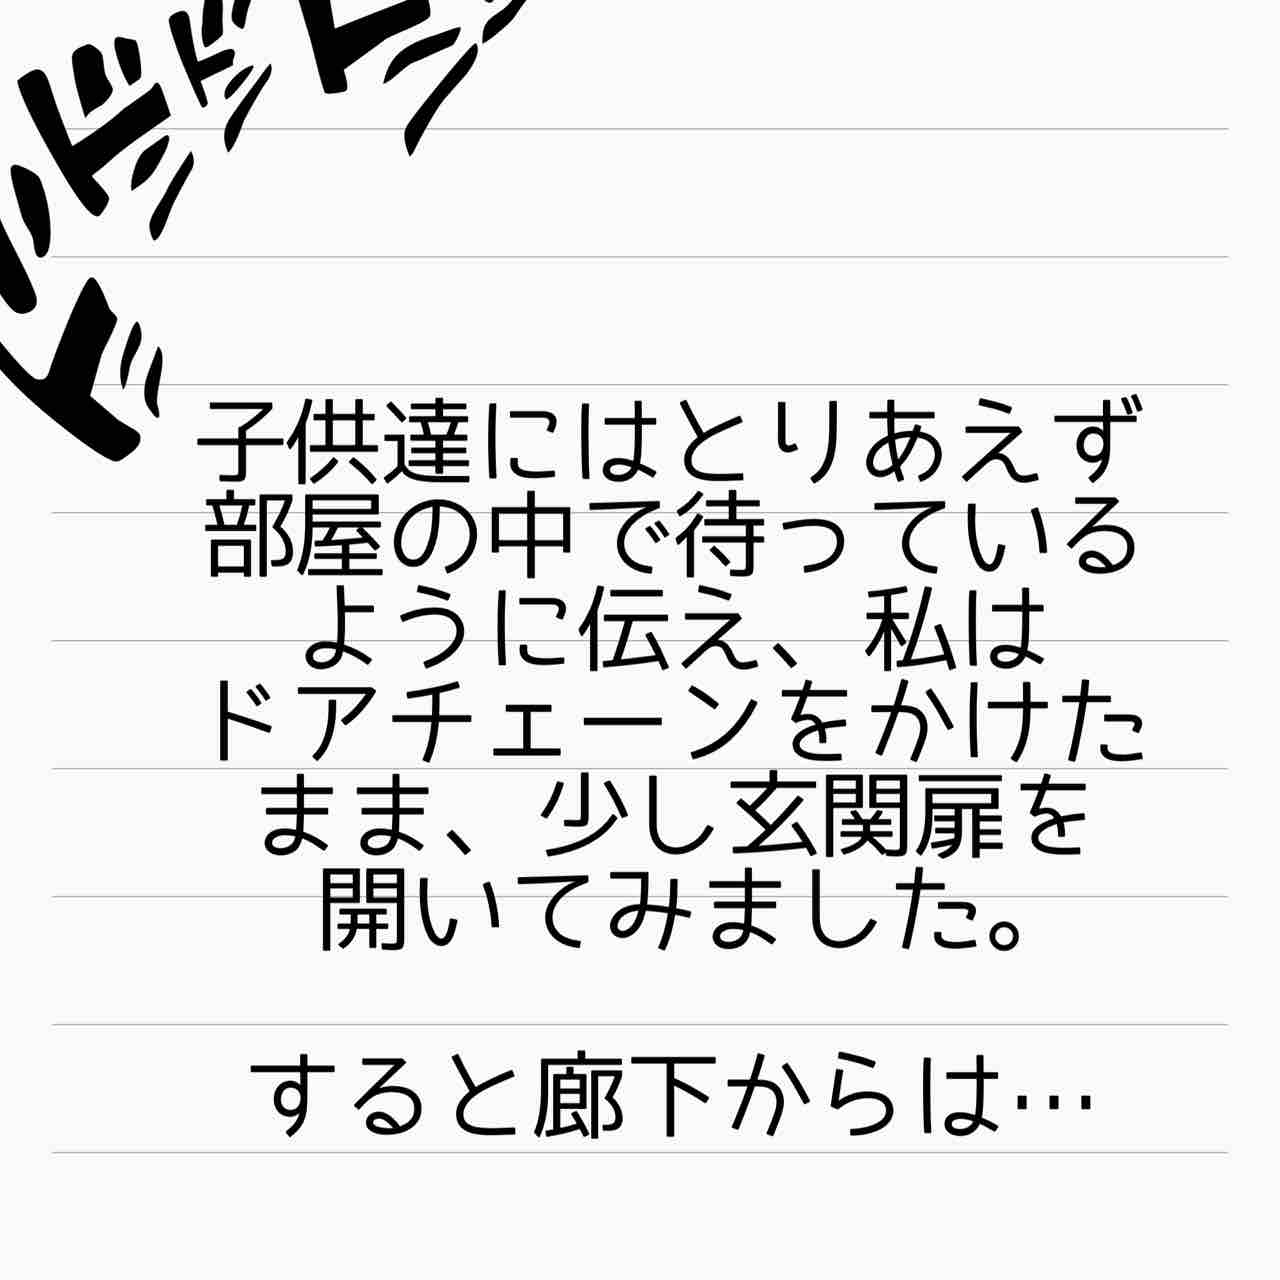 ドドドド
ド
子供達にはとりあえず
部屋の中で待っている
ように伝え、私は
ドアチェーンをかけた
まま、少し玄関扉を
開いてみました。
すると廊下からは…